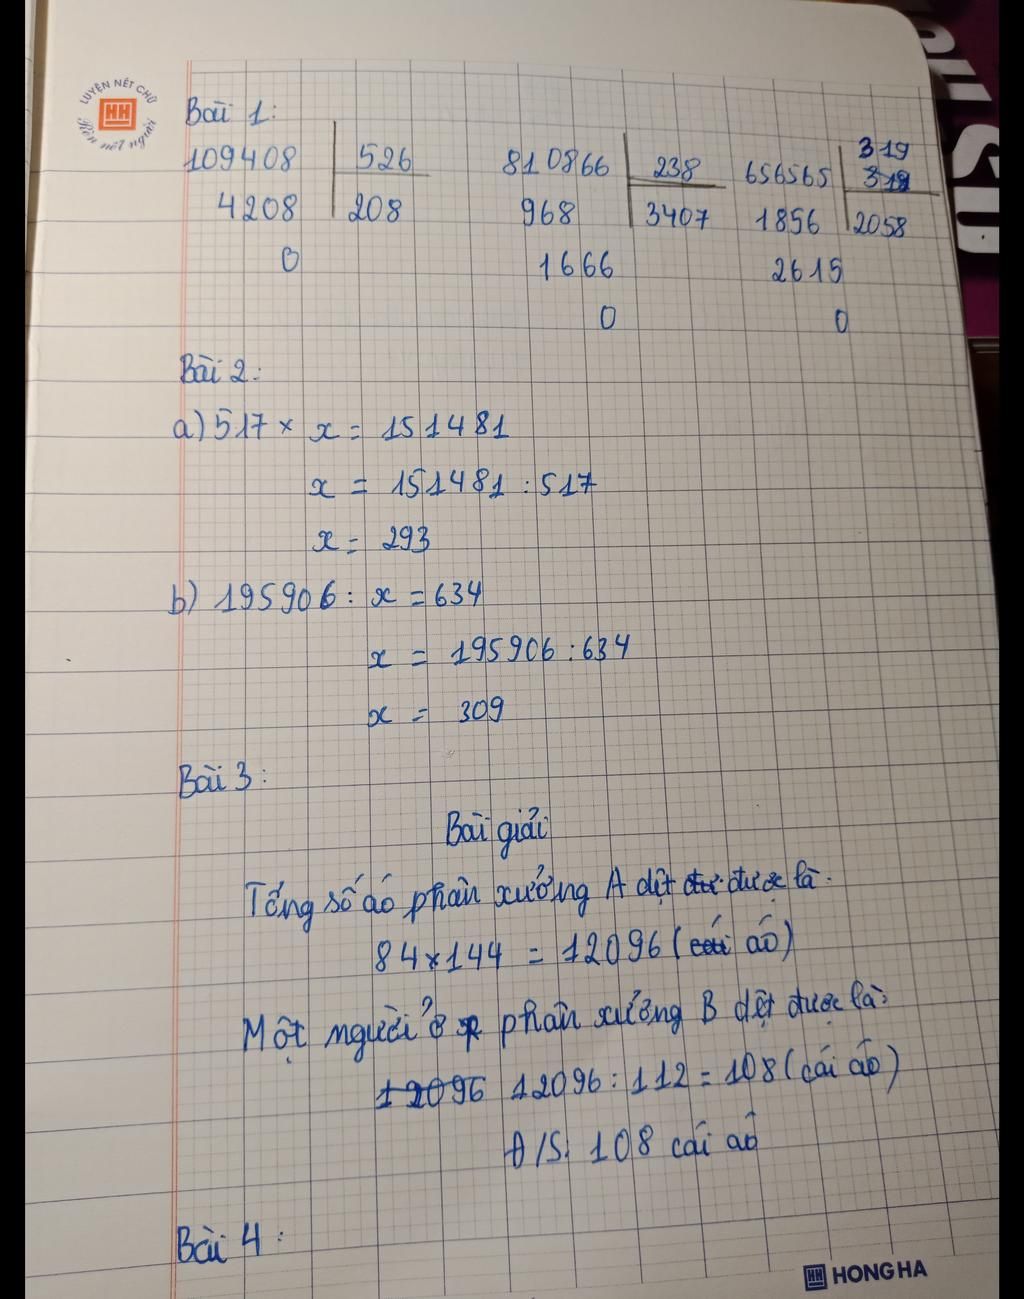 LUYỆN NÉT CHỮ
HH
Rèn nết người
Bài 1:
109408 526 810866 238 656565 319
319
4208 208 968 3407 1856 2058
0 1666 2615
0 0
Bài 2:
a) 517 × x = 151481
x = 151481 : 517
x = 293
b) 195906 : x = 634
x = 195906 : 634
x = 309
Bài 3:
Bài giải
Tổng số áo phân xưởng A dệt được là:
84 × 144 = 12096 (cái áo)
Một người ở phân xưởng B dệt được là:
12096 12096 : 112 = 108 (cái áo)
Đ/S: 108 cái áo
Bài 4:
HH HONG HA